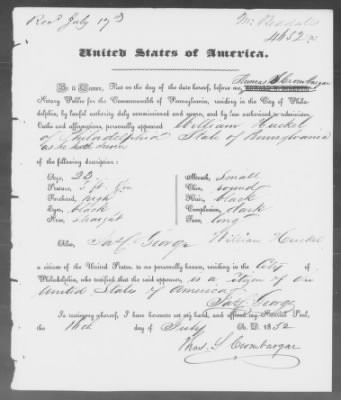 Recd July 17th
4652
United States of America.
Be it Known, That on the day of the date hereof, before me, Thomas S Crombargar
Notary Public for the Commonwealth of Pennsylvania, residing in the City of Phila-
delphia, by lawful authority duly commissioned and sworn, and by law authorized to administer
Oaths and affirmations, personally appeared William Huckel
of Philadelphia State of Pennsylvania
of the following description:
Age, 22 Mouth, small
Stature, 5 ft. Chin, round
Forehead, high Hair, black
Eyes, black Complexion, dark
Nose, straight Face, long
Also, Jas. George William Huckel
a citizen of the United States, to me personally known, residing in the City of
Philadelphia, who testified that the said appearer, is a citizen of the
United States of America
Jas. George
In testimony whereof, I have hereunto set my hand, and affixed my Notarial Seal,
the 16th day of July A. D. 1852
Thos. S Crombargar